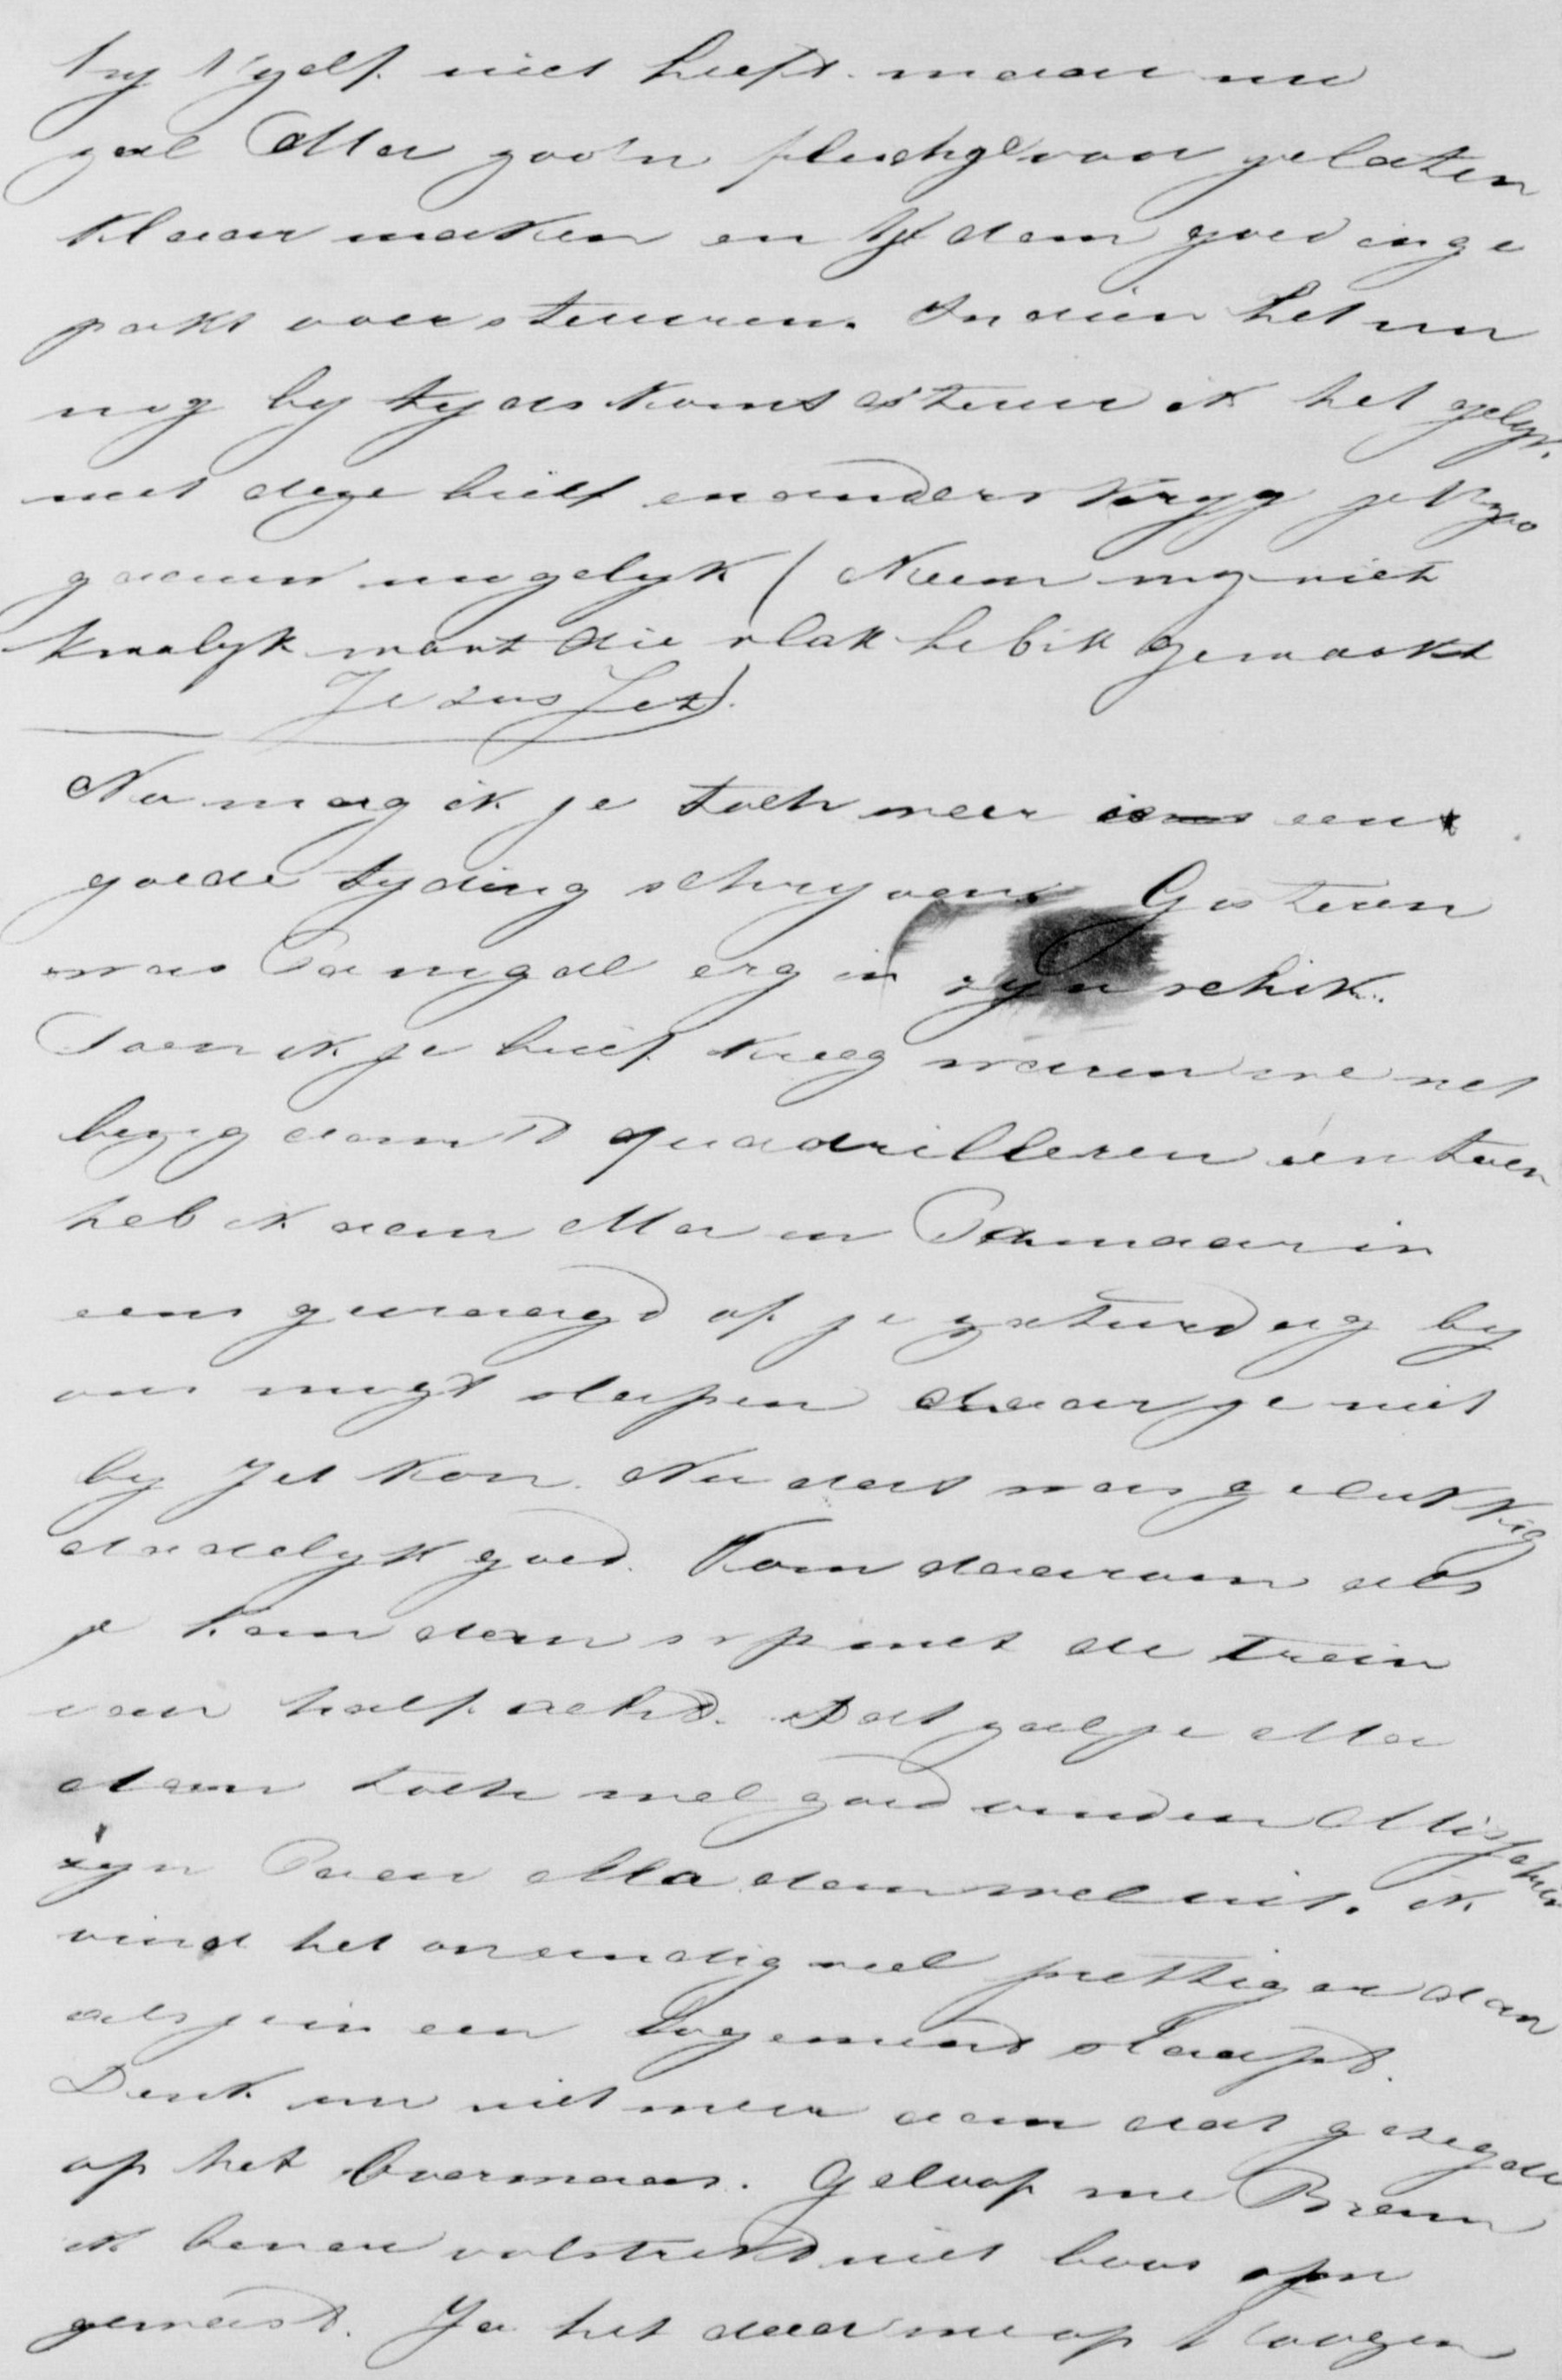 hy t zelf niet heeft. maar nu
zal Ma zoo'n pluchge voor je laten
klaar maken en dan goed inge
pakt oversturen. Indien het nu
nog by tyds komt stuur ik het gelyk.
met deze brief en anders kryg je
gaauw mogelyk (Neem my niet
kwalyk want die vlak heb ik gemaakt
Je zus Jet).
Nu mag ik je toch weer eens een
goede tyding schryven Gisteren
was Pa nogal erg in zyn schik.
Toen ik je brief kreeg waren we net
bezig aan 't quadrilleren en toen
heb ik aan Ma en Pa maar in
eens gevraagd of je zaturdag by
ons mogt slapen daar je niet
by Jet kon. Nu dat was gelukkig
dadelyk goed. Kom daarom als
je kan dan s v p met de trein
van half acht. Dat zal je Ma
dan toch wel goed vinden Misschien
zyn Pa en Ma dan wel uit. ik
vind het oneindig veel prettiger dan
als je in een logement slaapt.
Denk nu niet meer aan dat gezegde
op het Overmaas. Geloof me Bram
ik ben er volstrekt niet boos om
geweest. Ja het daar me op t oogen